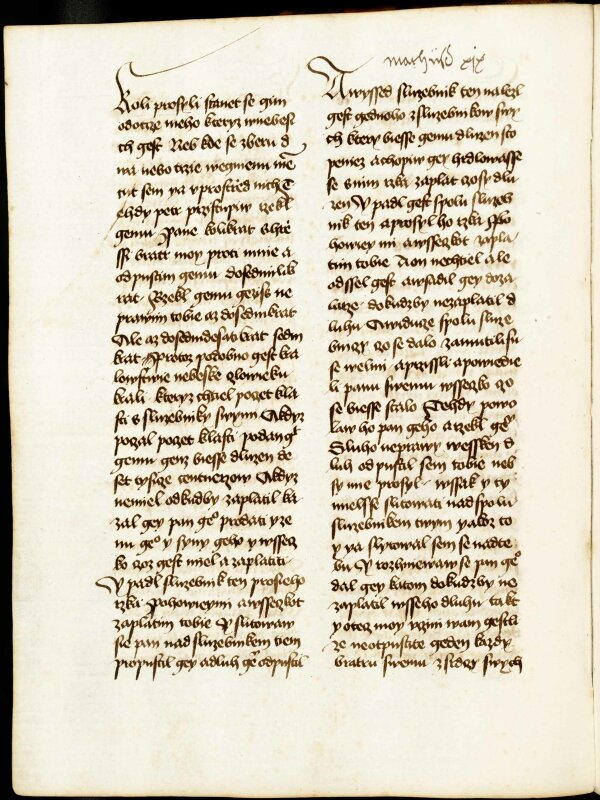 mathüß xix
Koli prosyli stanet se gim
odotcze meho kteryz wnebesi
ch gest Neb kde se zberu d
wa nebo trzie wegmenu me
tut sem ya vprostred nich T
ehdy petr przistupiw rzekl
gemu Pane kolikrat zhre
ssi bratr moy proti mnie a
odpustim gemu dosedmikk
rat Rzekl gemu gezis ne
prawim tobie az dosedmkrat
Ale az dosedmdesat krat sedm
krat Protoz podobno gest kra
lowstwie nebeske czlowieku
krali kteryz chtiel poczet kla
sti s sluzebniky swymi A kdyz
poczal poczet klasti podan gt
gemu genz biesse dluzen de
set tysicz centnerzow A kdyz
nemiel odkudby zaplatil ka
zal gey pan geo prodati y ze
nu geo y syny geho y wssecz
ko coz gest miel a zaplatiti
V padl sluzebnik ten prosieho
rzka Pohowieymi a wsseczkot
zaplatim tobie V slitowaw
sie pan nad sluzebnikem tiem
propustil gey a dluh ge odpustil
A wyssed sluzebnik ten nalezl
gest gednoho z sluzebnikow swy
ch ktery biesse gemu dluzen sto
peniez a chopiw gey hrdlowasse
se snim rzka zaplat czosy dlu
zen V padl gest spolu sluzeb
nik ten a prosyl ho rzka Po
howiey mi a wsseczkot zapla
tim tobie A on nechtiel ale
odssel gest a wsadil gey do za
larze dokudzby nezaplatil d
luhu A widucze spolu sluze
bnyczy czo se dalo zamutili su
se welmi a przissli a powiedie
li panu swemu wsseczko czo
se biesse stalo Tehdy powo
law ho pan geho a rzekl gey
Sluho neprawy wessken d
luh odpustil sem tobie neb
sy mne prosyl wssak y ty
miel sse slitowati nad spolu
sluzebnikem twym yakoz to
y ya slytowal sem se nad te
bu V rozhniewaw se pan geo
dal gey katom dokudzby ne
zaplatil wsseho dluhu takt
y otecz moy wzini wam gestli
ze neotpustite geden kazdy
bratru swemu z srdczy swych